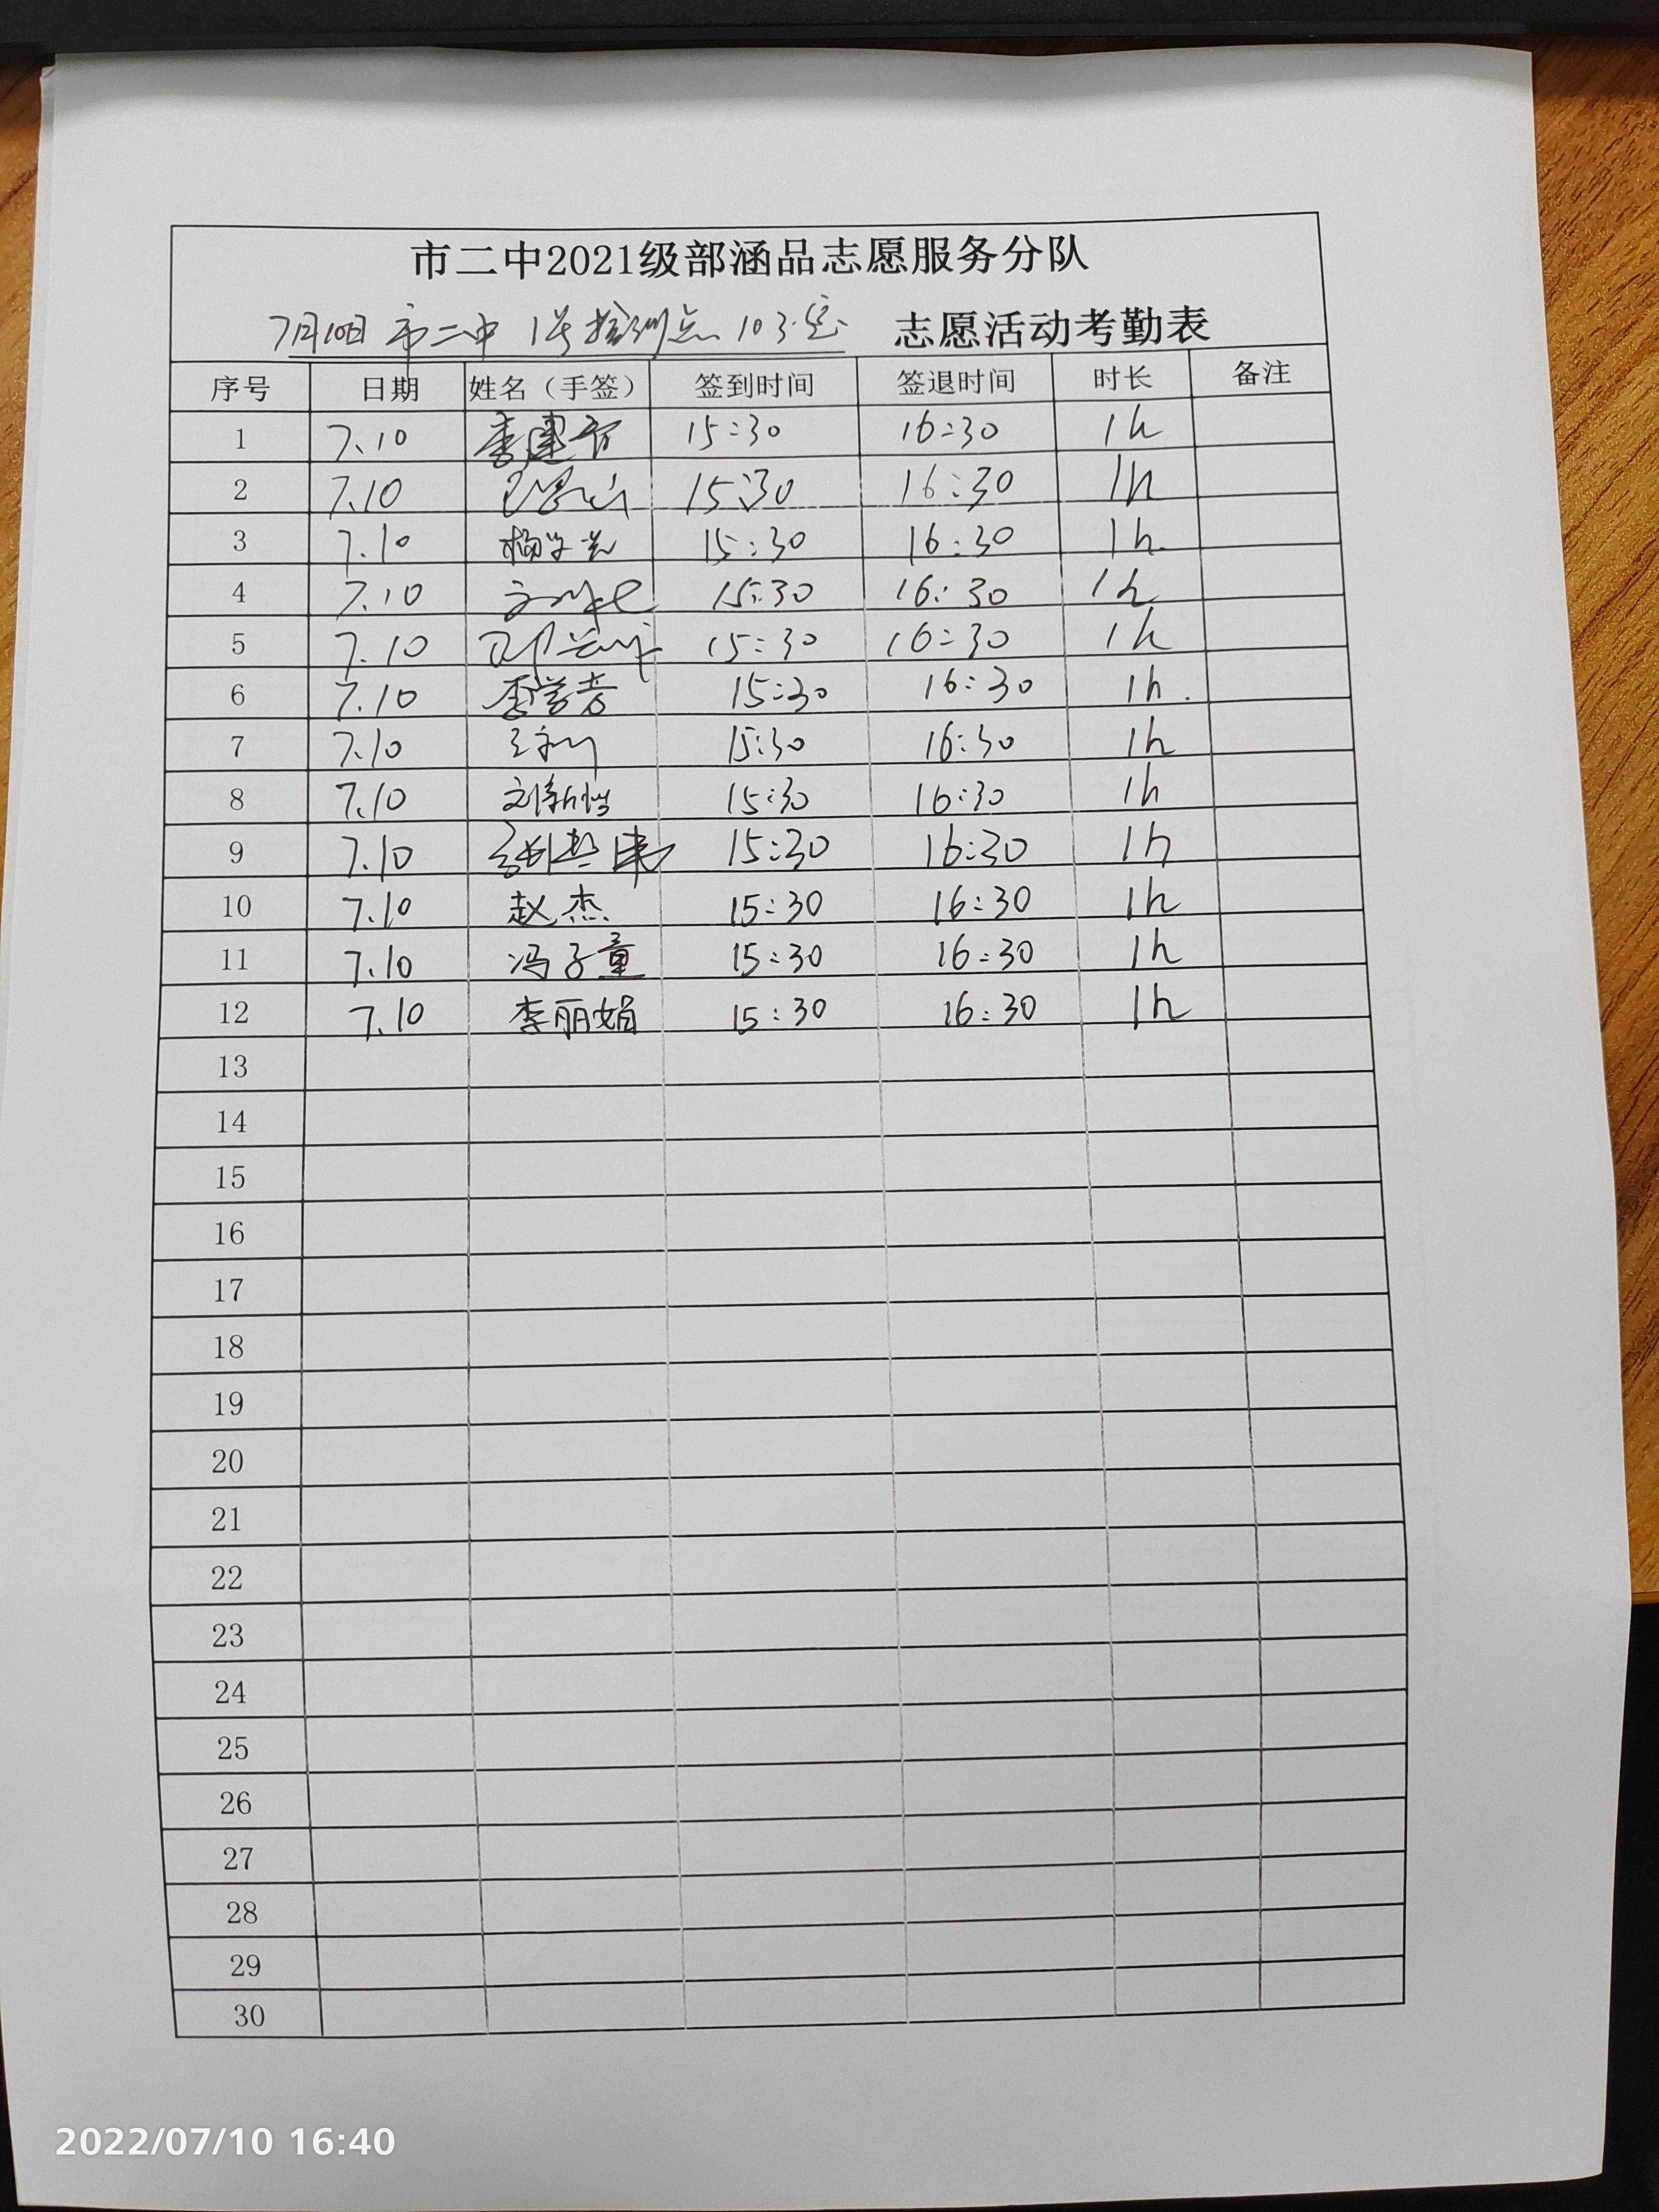 市二中2021级部涵品志愿服务分队
7月10日 市二中 1号检测点 103室 志愿活动考勤表
序号 日期 姓名（手签） 签到时间 签退时间 时长 备注
1 7.10 15:30 16:30 1h
2 7.10 15:30 16:30 1h
3 7.10 15:30 16:30 1h.
4 7.10 15:30 16:30 1h
5 7.10 15:30 16:30 1h
6 7.10 15:30 16:30 1h.
7 7.10 15:30 16:30 1h
8 7.10 15:30 16:30 1h
9 7.10 15:30 16:30 1h
10 7.10 赵杰 15:30 16:30 1h
11 7.10 冯子童 15:30 16:30 1h
12 7.10 李丽娟 15:30 16:30 1h
13
14
15
16
17
18
19
20
21
22
23
24
25
26
27
28
29
30
2022/07/10 16:40